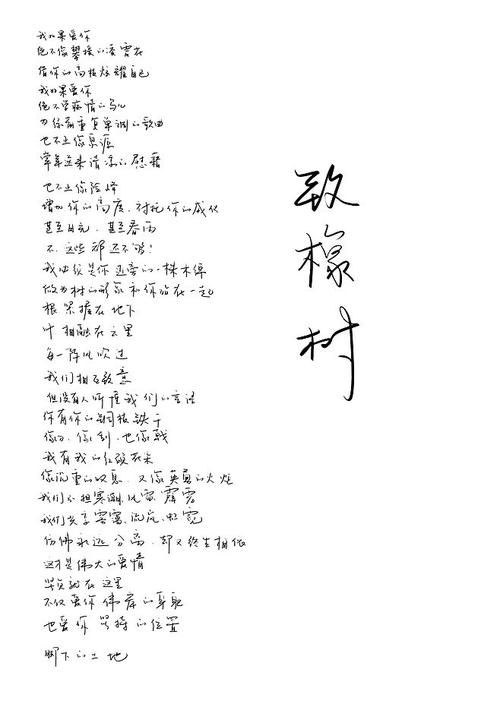 致橡树
我如果爱你
绝不像攀援的凌霄花
借你的高枝炫耀自己
我如果爱你
绝不学痴情的鸟儿
为绿荫重复单调的歌曲
也不止像泉源
常年送来清凉的慰藉
也不止像险峰
增加你的高度,衬托你的威仪
甚至日光,甚至春雨
不,这些都还不够!
我必须是你近旁的一株木棉
做为树的形象和你站在一起
根紧握在地下
叶相融在云里
每一阵风吹过
我们相互致意
但没有人听懂我们的言语
你有你的铜枝铁干
像刀、像剑、也像戟
我有我的红硕花朵
像沉重的叹息,又像英勇的火炬
我们分担寒潮、风雷、霹雳
我们共享雾霭、流岚、虹霓
仿佛永远分离,却又终生相依
这才是伟大的爱情
坚贞就在这里
不仅爱你伟岸的身躯
也爱你坚持的位置
脚下的土地